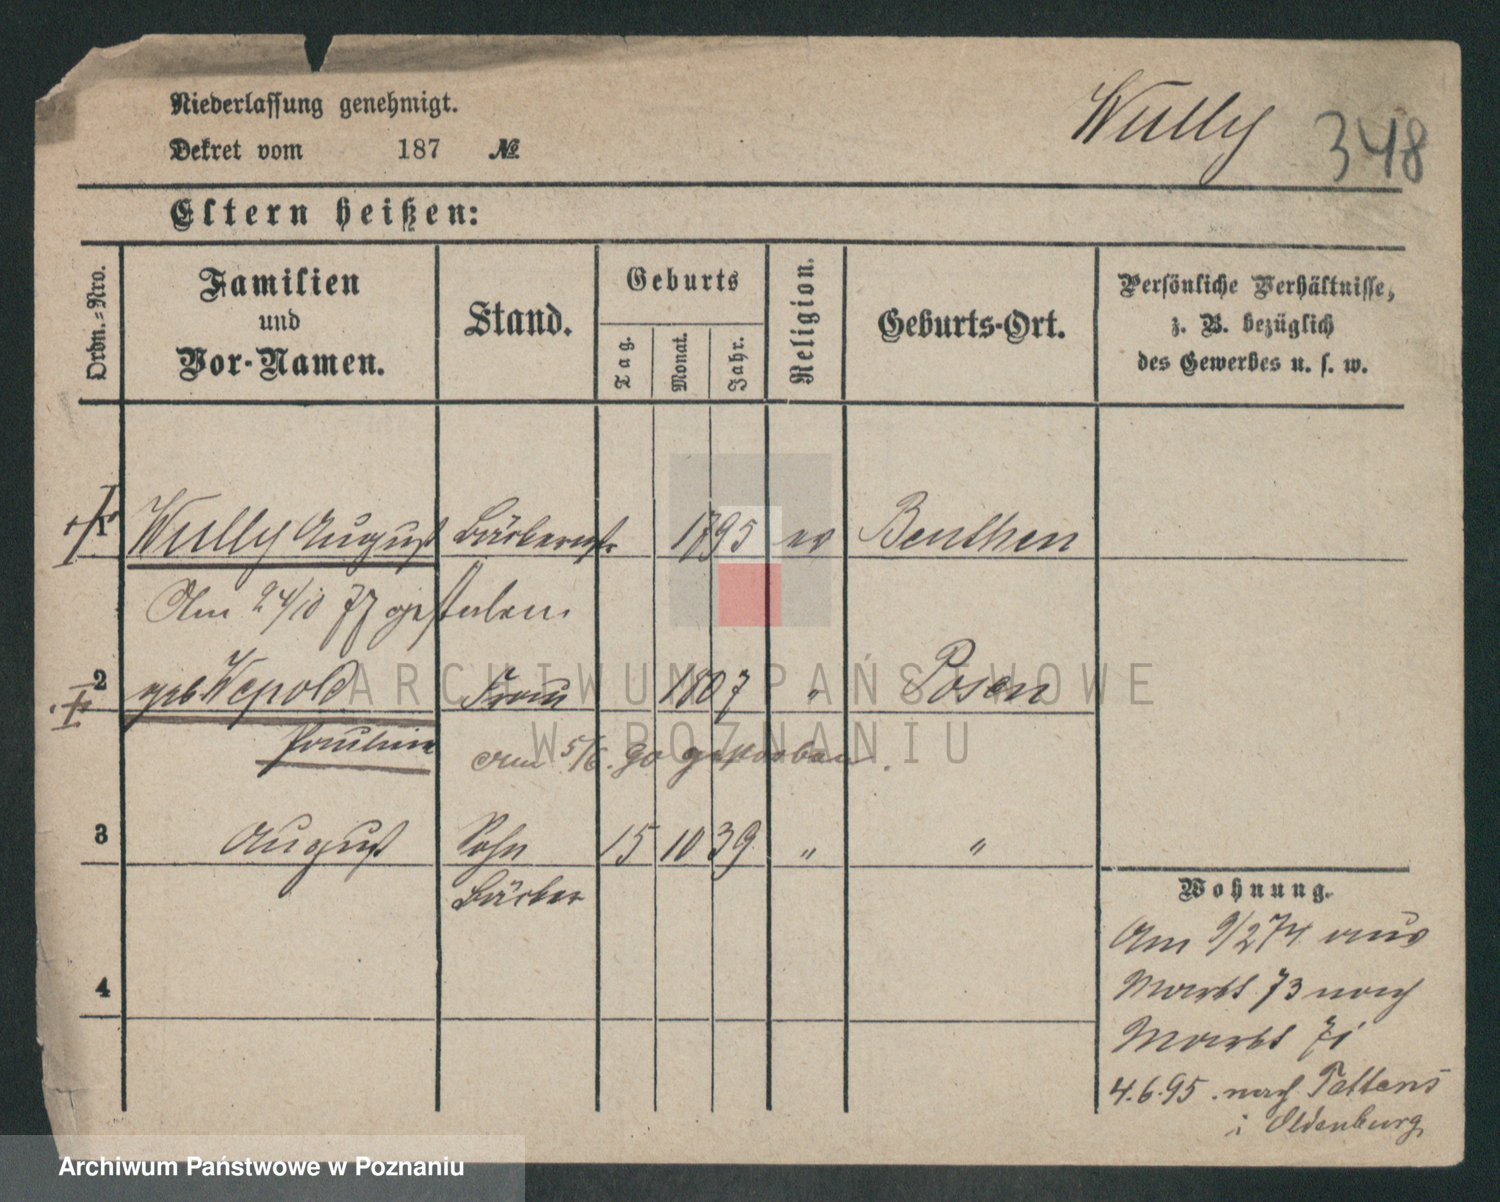 Niederlassung genehmigt.
Dekret vom 187 №
Wully 348
Eltern heißen:
Ordn.-Nro.
Familien
und
Vor-Namen.
Stand.
Geburts
Tag.
Monat.
Jahr.
Religion.
Geburts-Ort.
Persönliche Verhältnisse,
z. B. bezüglich
des Gewerbes u. s. w.
1 Wully August Bäckermstr 1795 ev Beuthen
Am 24/10 77 gestorben.
2 geb. Wepold Frau 1807 " Posen
Pauline
am 5/6. 90 gestorben.
3 August Sohn 15 10 39 " "
Bäcker
4
Wohnung.
Am 9/2 74 aus
Markt 73 nach
Markt 71
4.6.95. nach Tettens
i Oldenburg
ARCHIWUM PAŃSTWOWE
W POZNANIU
Archiwum Państwowe w Poznaniu